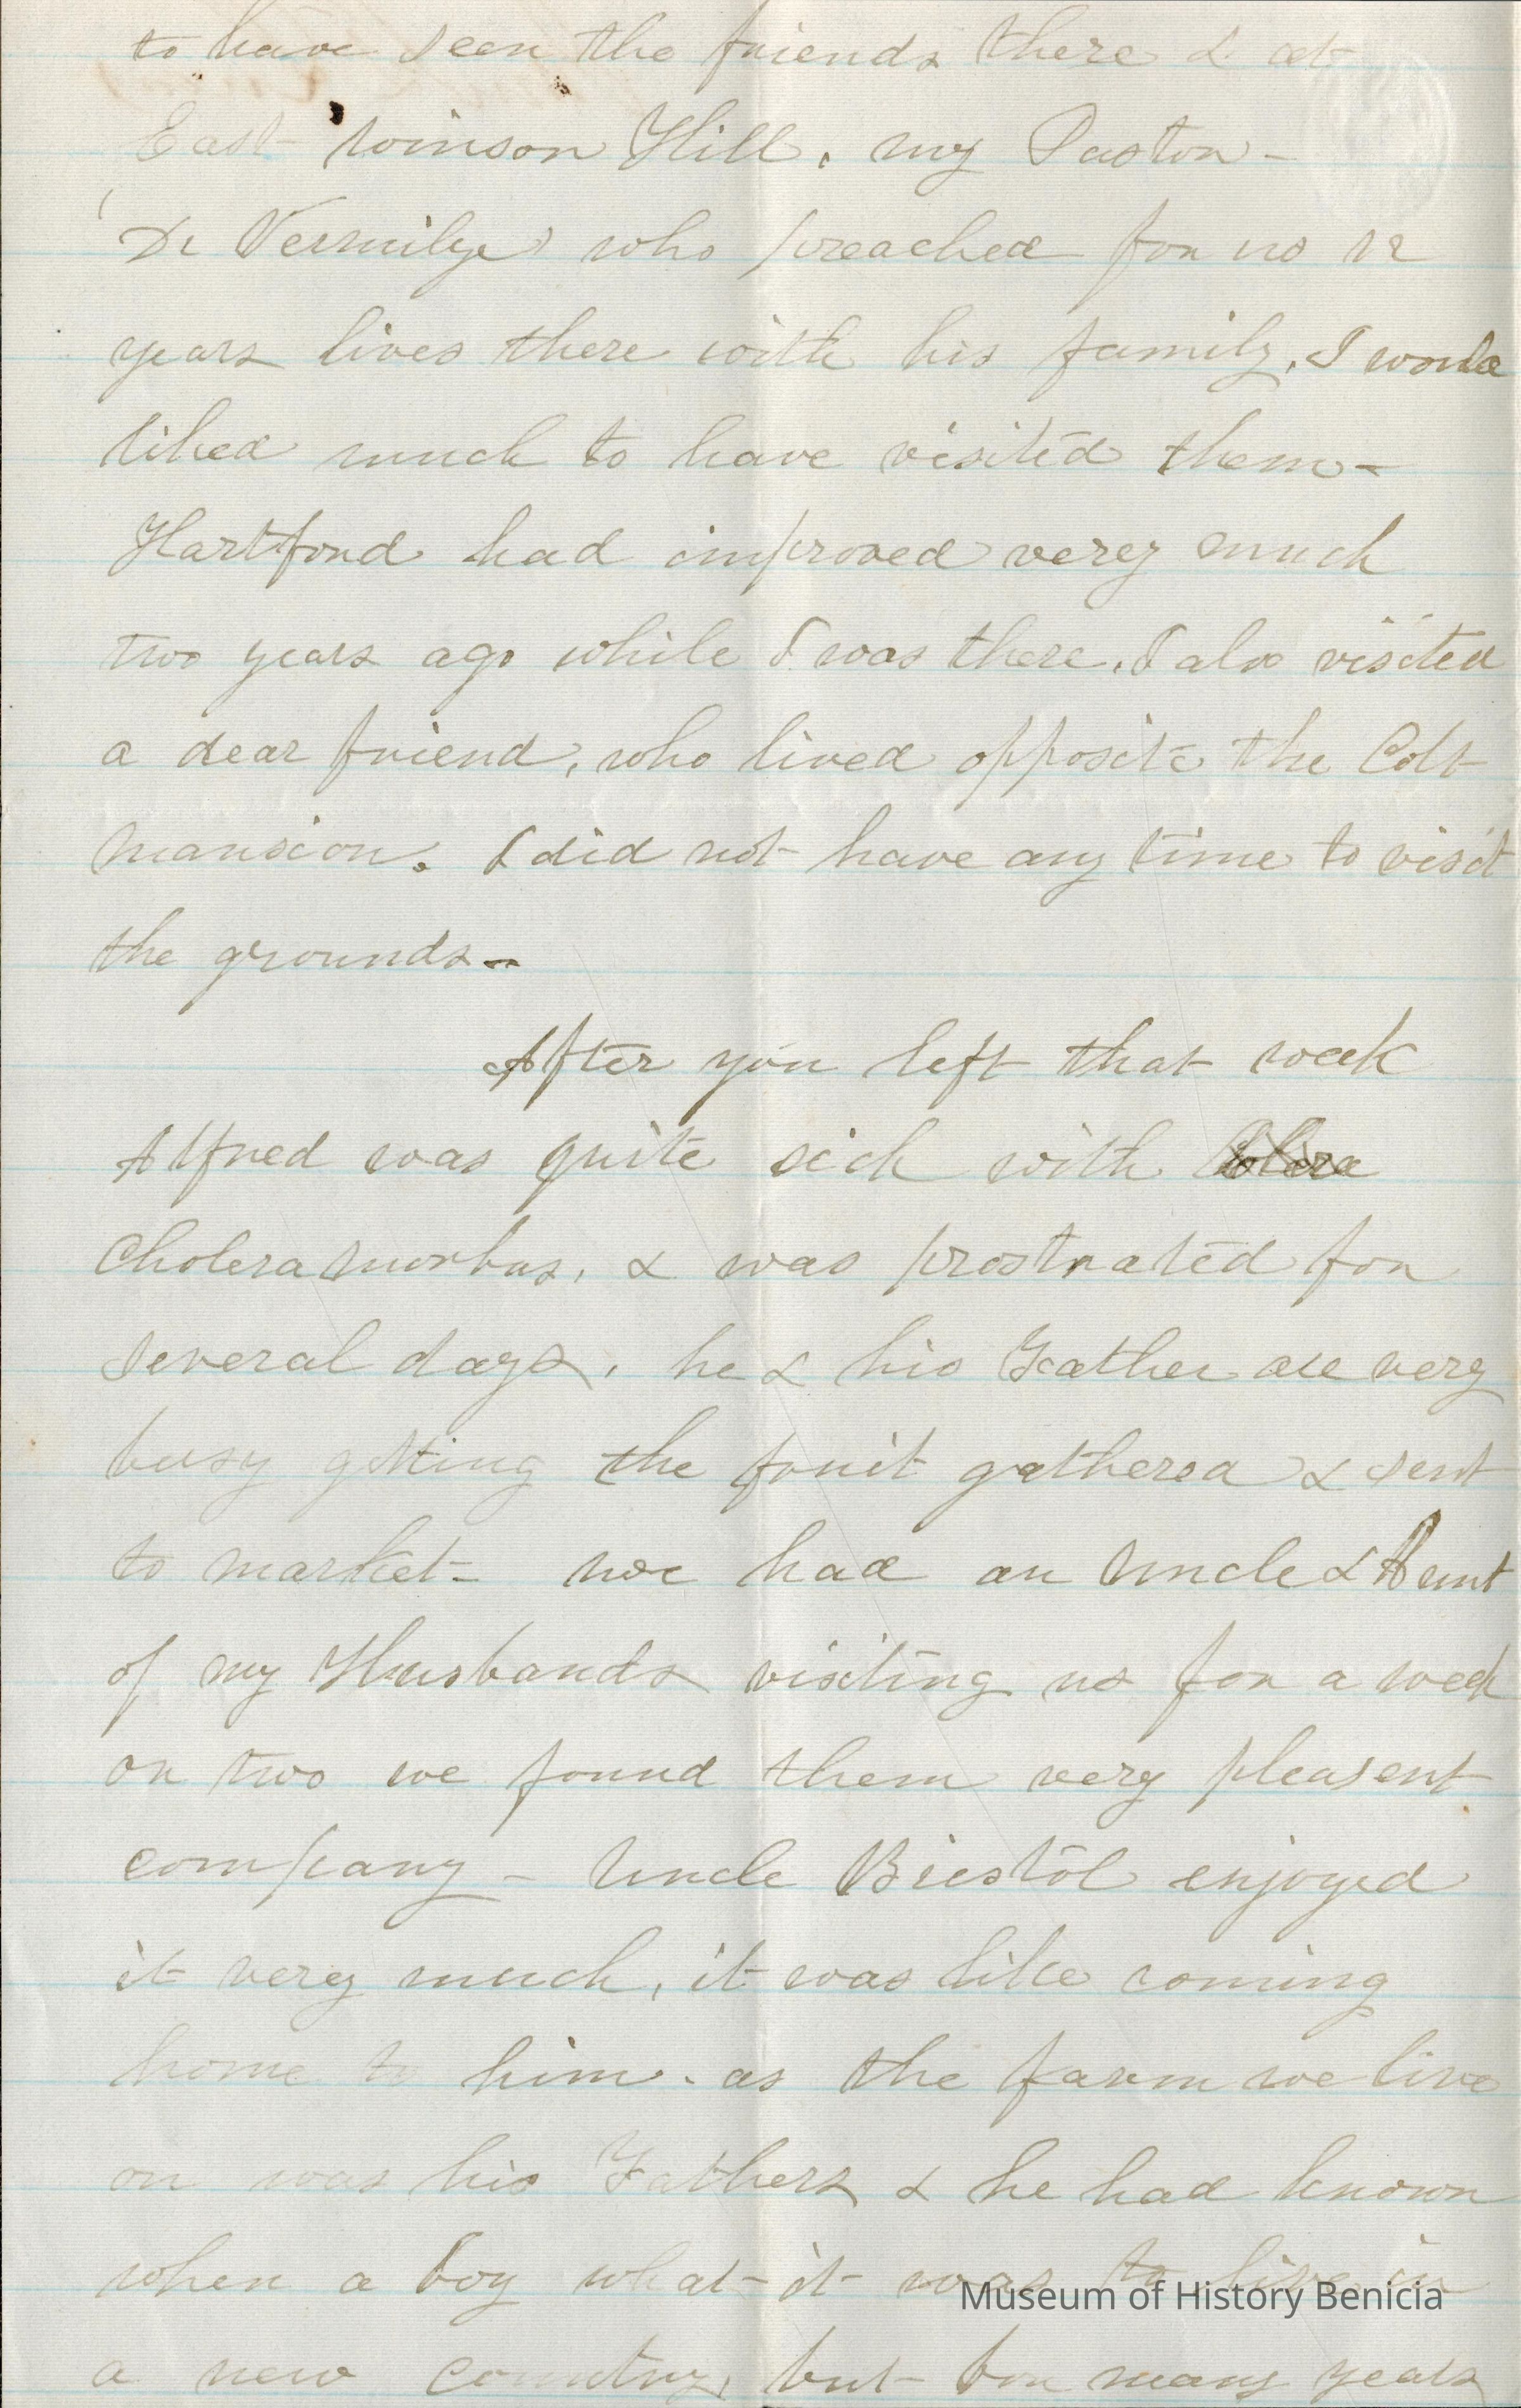 to have seen the friends there & at
East winson Hill, my Paston -
Dr Vermilye who preached for us 12
years lives there with his family, I would
liked much to have visited them -
Hartford had improved verey much
two years ago while I was there, I also visited
a dear friend, who lived opposite the Colt
mansion. I did not have any time to visit
the grounds -
After you left that week
Alfred was quite sick with
Cholera morbus, & was prostrated for
several days, he & his Father are very
busy getting the fruit gathered & sent
to market - we had an Uncle & Aunt
of my Husbands visiting us for a week
or two we found them very pleasent
company - Uncle Bristol enjoyed
it verey much, it was like coming
home to him. as the farm we live
on was his Fathers & he had known
when a boy what it was to live in
a new country, but for many years
Museum of History Benicia